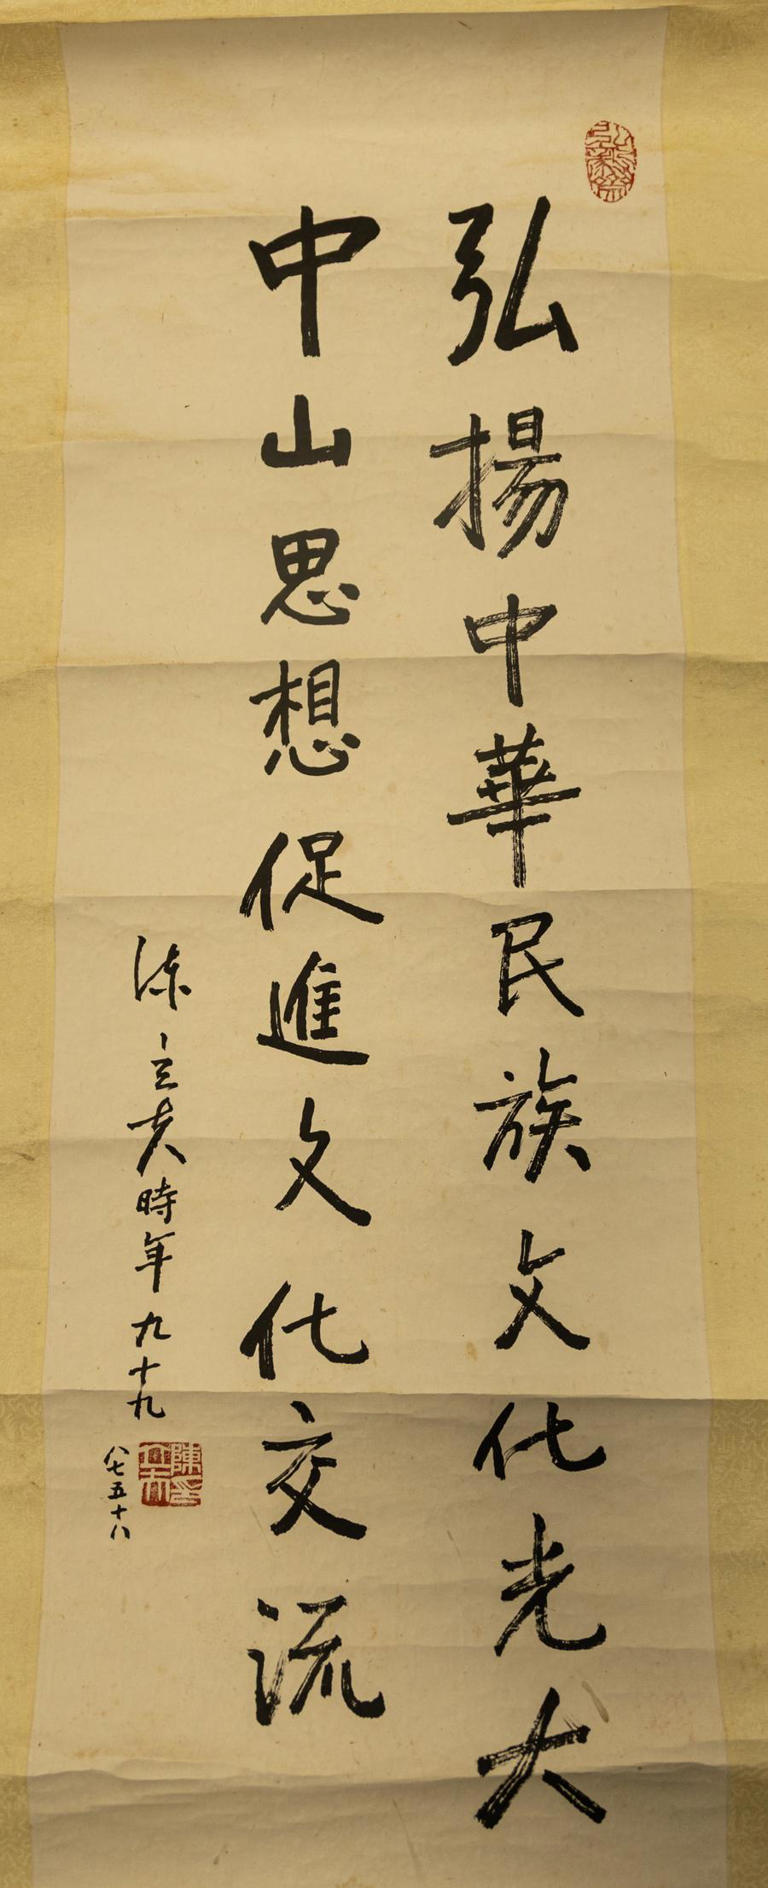 弘揚中華民族文化光大
中山思想促進文化交流
陳立夫時年九十九
八七五十八
陳立夫印